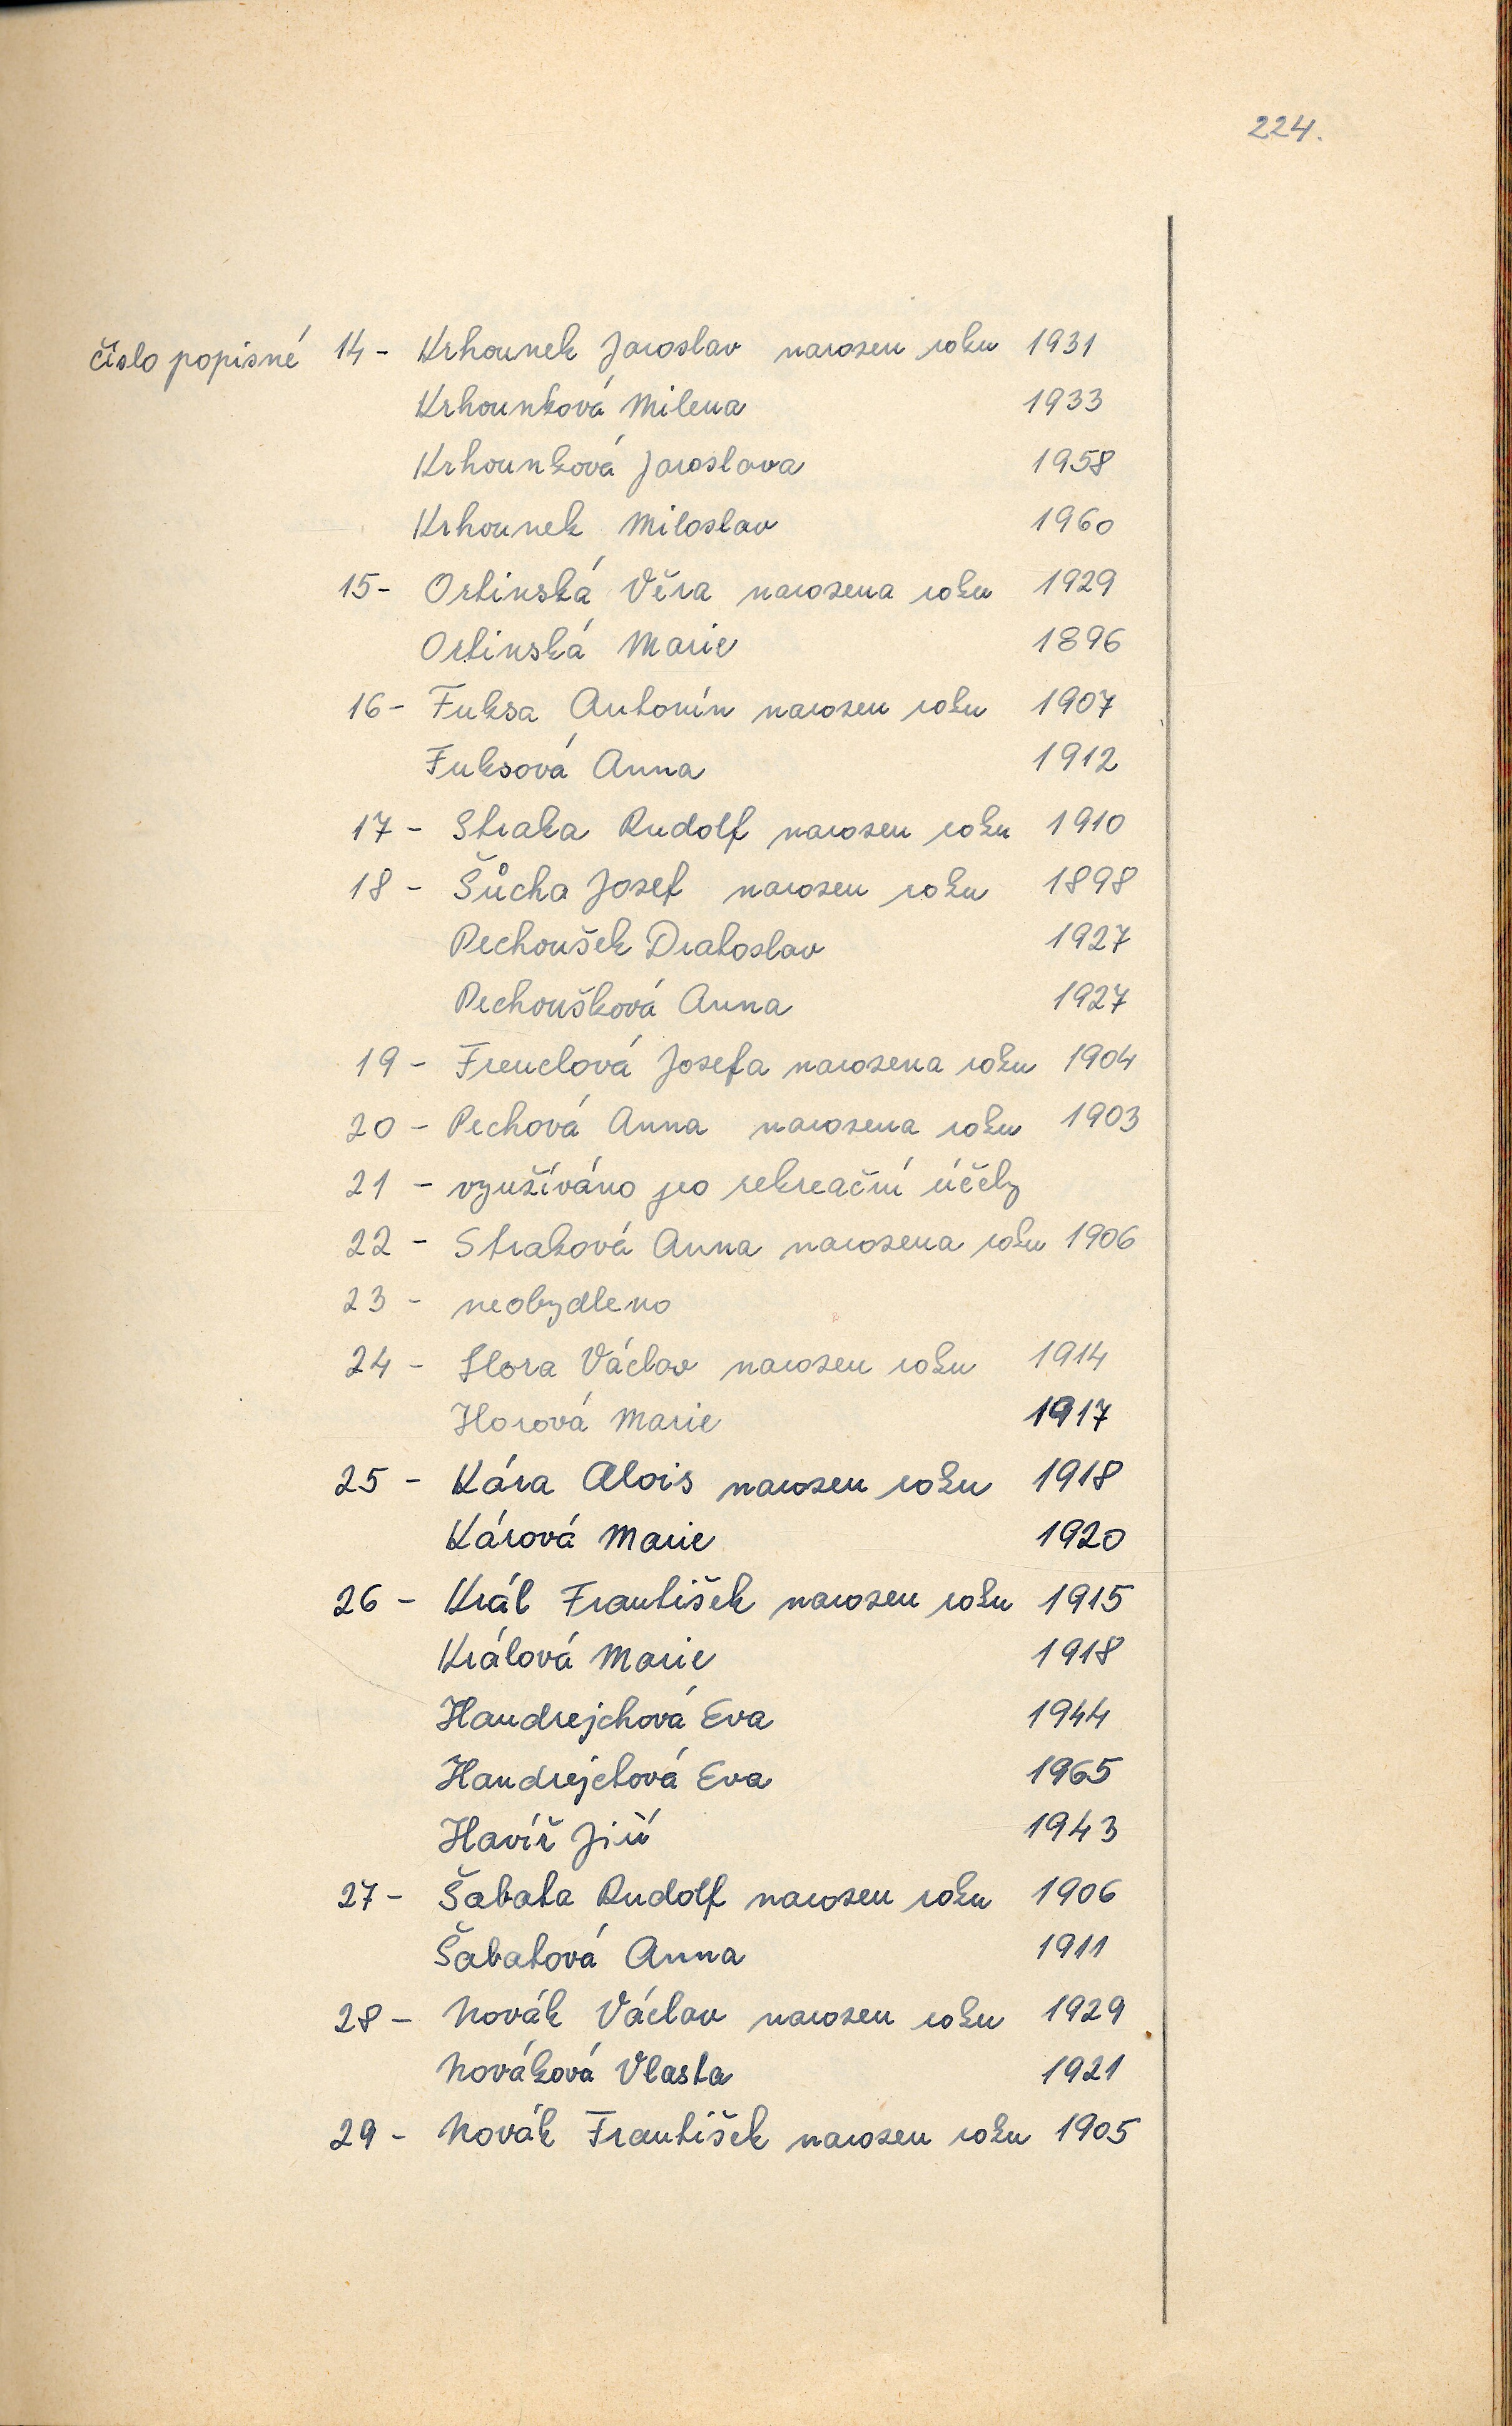 224.
číslo popisné 14 - Krhounek Jaroslav narozen roku 1931
Krhounková Milena 1933
Krhounková Jaroslava 1958
Krhounek Miloslav 1960
15 - Ortinská Věra narozena roku 1929
Ortinská Marie 1896
16 - Fuksa Antonín narozen roku 1907
Fuksová Anna 1912
17 - Straka Rudolf narozen roku 1910
18 - Šůcha Josef narozen roku 1898
Pechoušek Drahoslav 1927
Pechoušková Anna 1927
19 - Frenclová Josefa narozena roku 1904
20 - Pechová Anna narozena roku 1903
21 - využíváno pro rekreační účely
22 - Straková Anna narozena roku 1906
23 - neobydleno
24 - Hora Václav narozen roku 1914
Horová Marie 1917
25 - Kára Alois narozen roku 1918
Kárová Marie 1920
26 - Král František narozen roku 1915
Králová Marie 1918
Handrejchová Eva 1944
Handrejchová Eva 1965
Havíř Jiří 1943
27 - Šabata Rudolf narozen roku 1906
Šabatová Anna 1911
28 - Novák Václav narozen roku 1929
Nováková Vlasta 1921
29 - Novák František narozen roku 1905